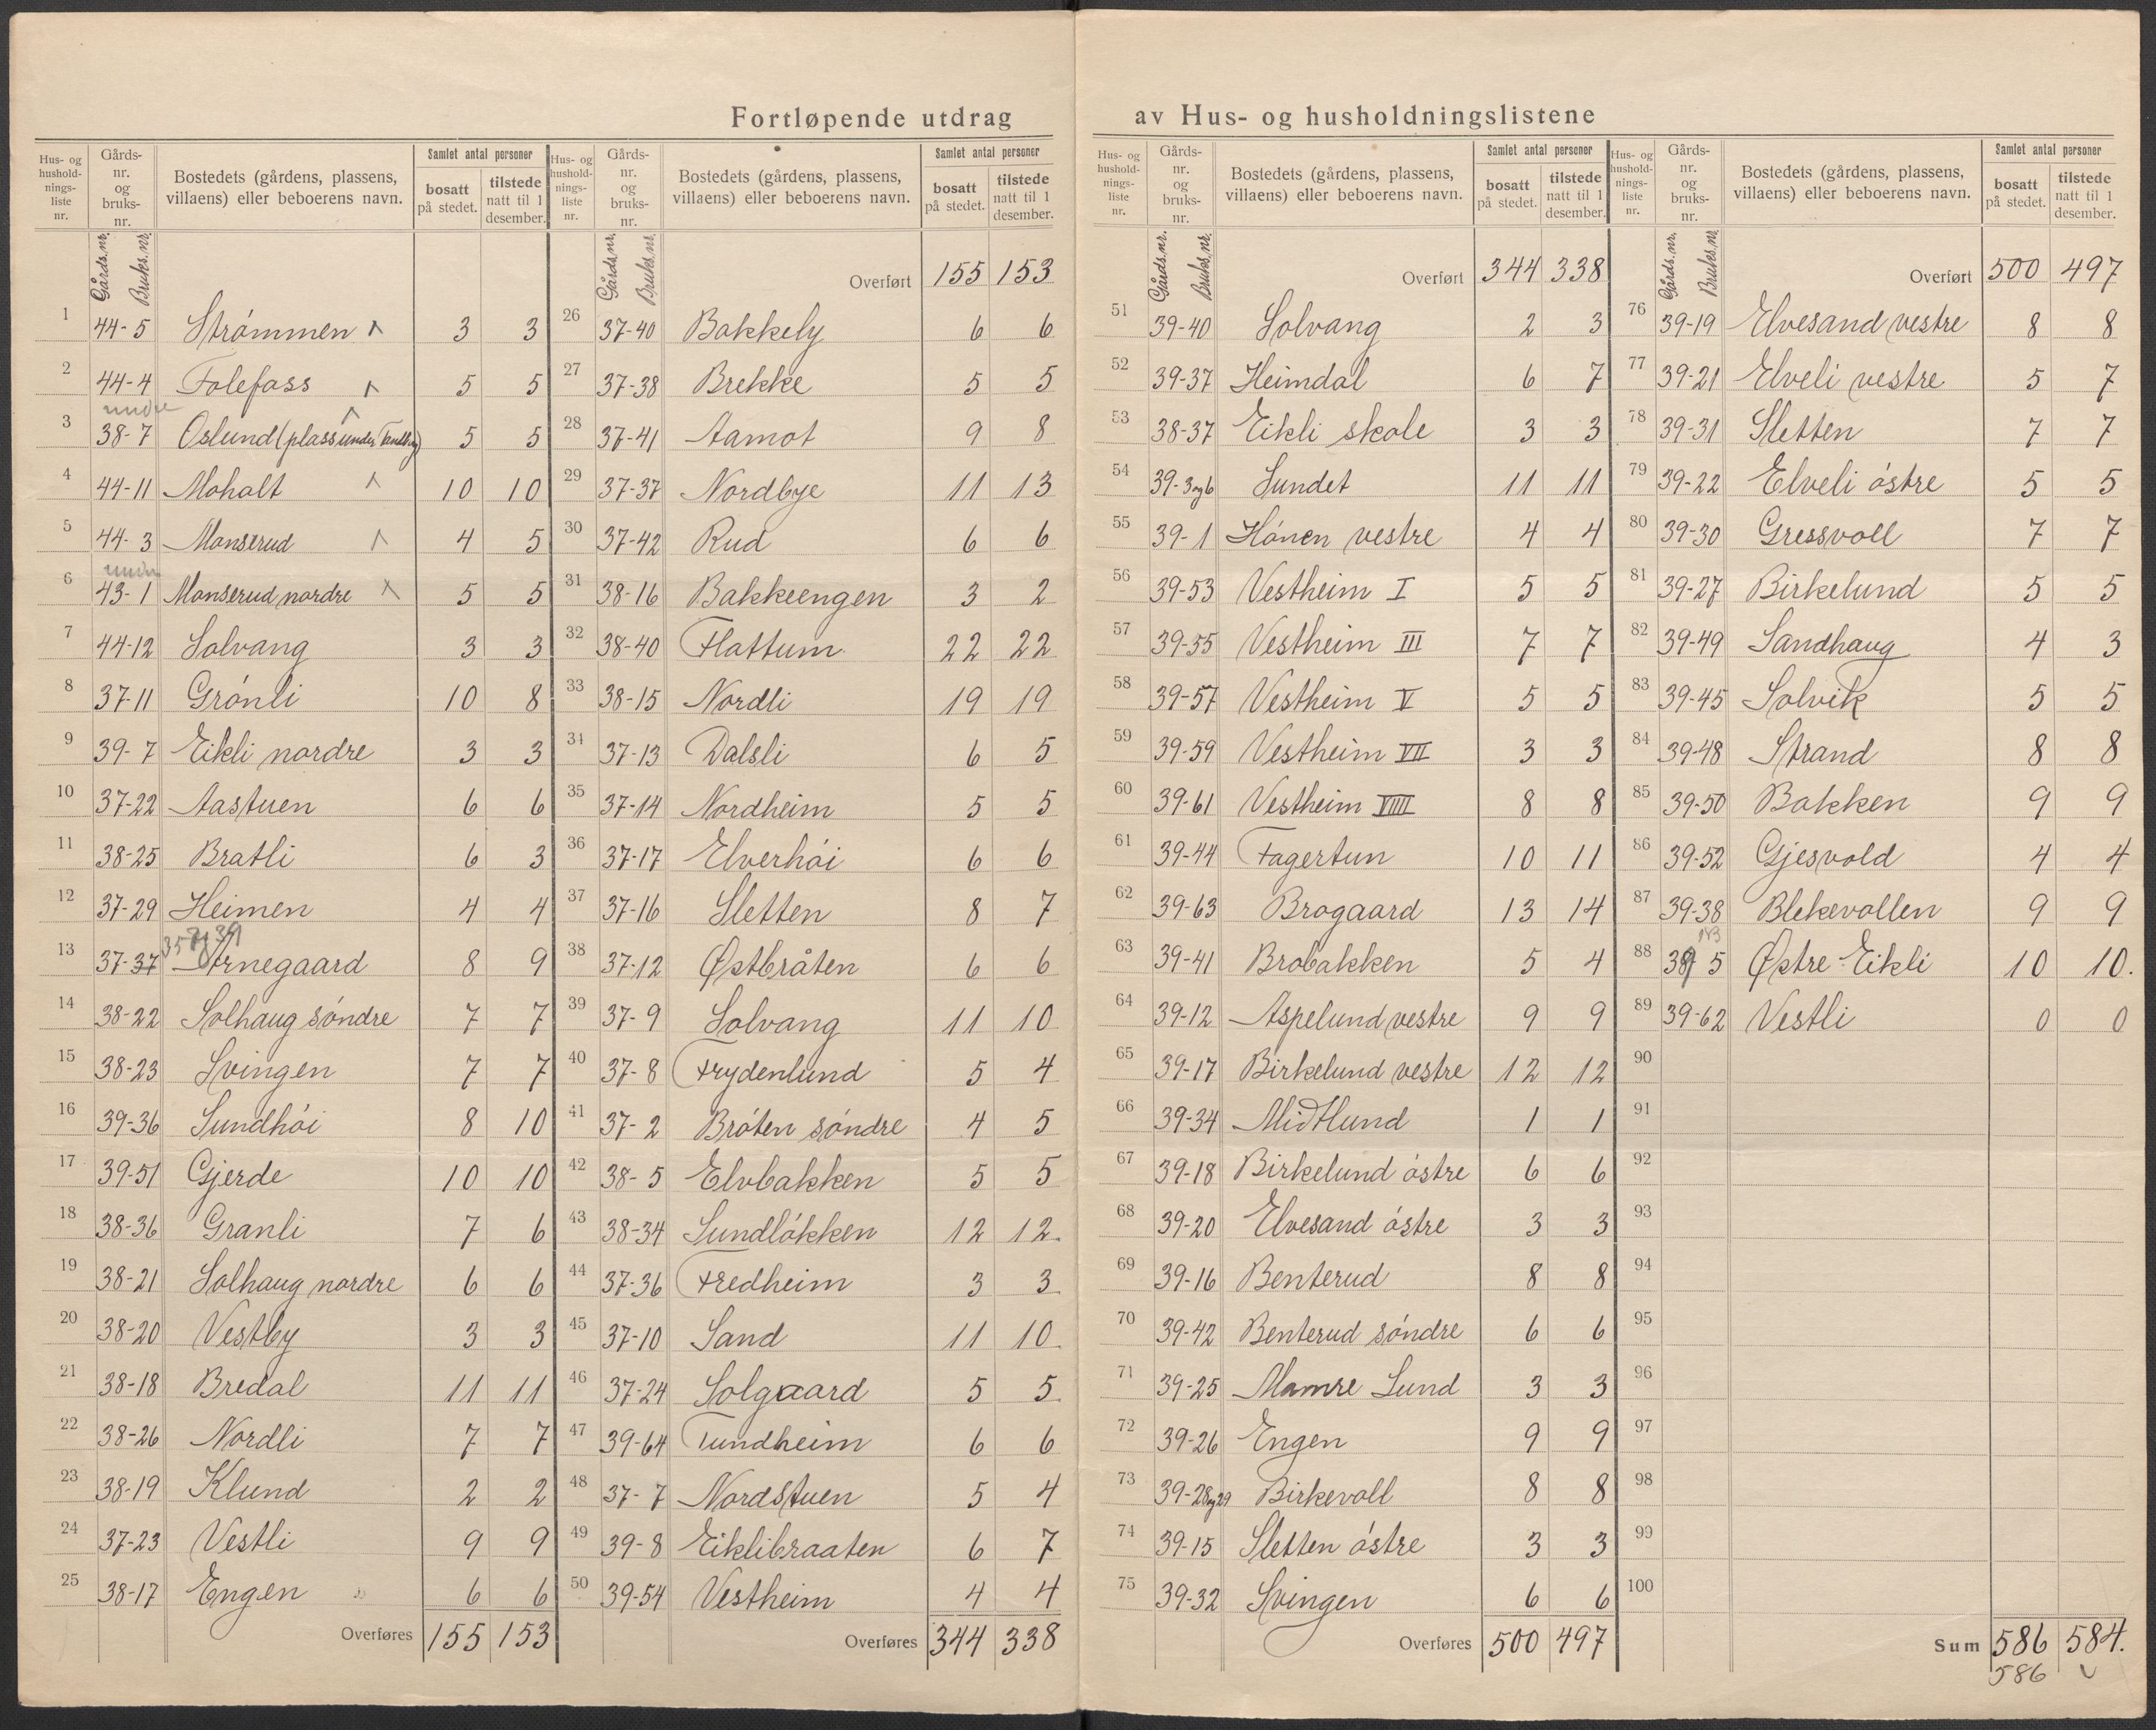 Fortløpende utdrag av Hus- og husholdningslistene
Hus- og husholdnings-liste nr. Gårds-nr. og bruks-nr. Bostedets (gårdens, plassens, villaens) eller beboerens navn. Samlet antal personer bosatt på stedet. tilstede natt til 1 desember.
Gårds.nr. Bruks.nr.
1 44-5 Strómmen 3 3
2 44-4 Folefass 5 5
3 under 38-7 Oslund (plass under Tandberg) 5 5
4 44-11 Moholt 10 10
5 44-3 Monserud 4 5
6 under 43-1 Monserud nordre 5 5
7 44-12 Solvang 3 3
8 37-11 Grónli 10 8
9 39-7 Eikli nordre 3 3
10 37-22 Aastuen 6 6
11 38-25 Bratli 6 3
12 37-29 Heimen 4 4
13 37-37 Arnegaard 8 9
14 38-22 Solhaug sóndre 7 7
15 38-23 Svingen 7 7
16 39-36 Sundhói 8 10
17 39-51 Gjerde 10 10
18 38-36 Granli 7 6
19 38-21 Solhaug nordre 6 6
20 38-20 Vestby 3 3
21 38-18 Bredal 11 11
22 38-26 Nordli 7 7
23 38-19 Klund 2 2
24 37-23 Vestli 9 9
25 38-17 Engen 6 6
Overføres 155 153
Hus- og husholdnings-liste nr. Gårds-nr. og bruks-nr. Bostedets (gårdens, plassens, villaens) eller beboerens navn. Samlet antal personer bosatt på stedet. tilstede natt til 1 desember.
Gårds.nr. Bruks.nr. Overført 155 153
26 37-40 Bakkely 6 6
27 37-38 Brekke 5 5
28 37-41 Aamot 9 8
29 37-37 Nordbye 11 13
30 37-42 Rud 6 6
31 38-16 Bakkeengen 3 2
32 38-40 Flattum 22 22
33 38-15 Nordli 19 19
34 37-13 Dalsli 6 5
35 37-14 Nordheim 5 5
36 37-17 Elverhói 6 6
37 37-16 Sletten 8 7
38 37-12 Østbråten 6 6
39 37-9 Solvang 11 10
40 37-8 Frydenlund 5 4
41 37-2 Bróten sóndre 4 5
42 38-5 Elvbakken 5 5
43 38-34 Sundlókken 12 12.
44 37-36 Fredheim 3 3
45 37-10 Sand 11 10.
46 37-24 Solgaard 5 5.
47 39-64 Tundheim 6 6
48 37-7 Nordstuen 5 4
49 39-8 Eiklibraaten 6 7
50 39-54 Vestheim 4 4
Overføres 344 338
Hus- og husholdnings-liste nr. Gårds-nr. og bruks-nr. Bostedets (gårdens, plassens, villaens) eller beboerens navn. Samlet antal personer bosatt på stedet. tilstede natt til 1 desember.
Gårds.nr. Bruks.nr. Overført 344 338
51 39-40 Solvang 2 3
52 39-37 Heimdal 6 7
53 38-37 Eikli skole 3 3
54 39-3og6 Sundet 11 11
55 39-1 Hónen vestre 4 4
56 39-53 Vestheim I 5 5
57 39-55 Vestheim III 7 7
58 39-57 Vestheim V 5 5
59 39-59 Vestheim VII 3 3
60 39-61 Vestheim VIIII 8 8
61 39-44 Fagertun 10 11
62 39-63 Brogaard 13 14
63 39-41 Brobakken 5 4
64 39-12 Aspelund vestre 9 9
65 39-17 Birkelund vestre 12 12
66 39-34 Midtlund 1 1
67 39-18 Birkelund óstre 6 6
68 39-20 Elvesand óstre 3 3
69 39-16 Benterud 8 8
70 39-42 Benterud sóndre 6 6
71 39-25 Mamre Lund 3 3
72 39-26 Engen 9 9
73 39-28og29 Birkevoll 8 8
74 39-15 Sletten óstre 3 3
75 39-32 Svingen 6 6
Overføres 500 497
Hus- og husholdnings-liste nr. Gårds-nr. og bruks-nr. Bostedets (gårdens, plassens, villaens) eller beboerens navn. Samlet antal personer bosatt på stedet. tilstede natt til 1 desember.
Gårds.nr. Bruks.nr. Overført 500 497
76 39-19 Elvesand vestre 8 8
77 39-21 Elveli vestre 5 7
78 39-31 Sletten 7 7
79 39-22 Elveli óstre 5 5
80 39-30 Gressvoll 7 7
81 39-27 Birkelund 5 5
82 39-49 Sandhaug 4 3
83 39-45 Solvik 5 5
84 39-48 Strand 8 8
85 39-50 Bakken 9 9
86 39-52 Gjesvold 4 4
87 39-38 Blekevollen 9 9
88 39 5 Østre Eikli 10 10.
89 39-62 Vestli 0 0
90
91
92
93
94
95
96
97
98
99
100
Sum 586 584.
586